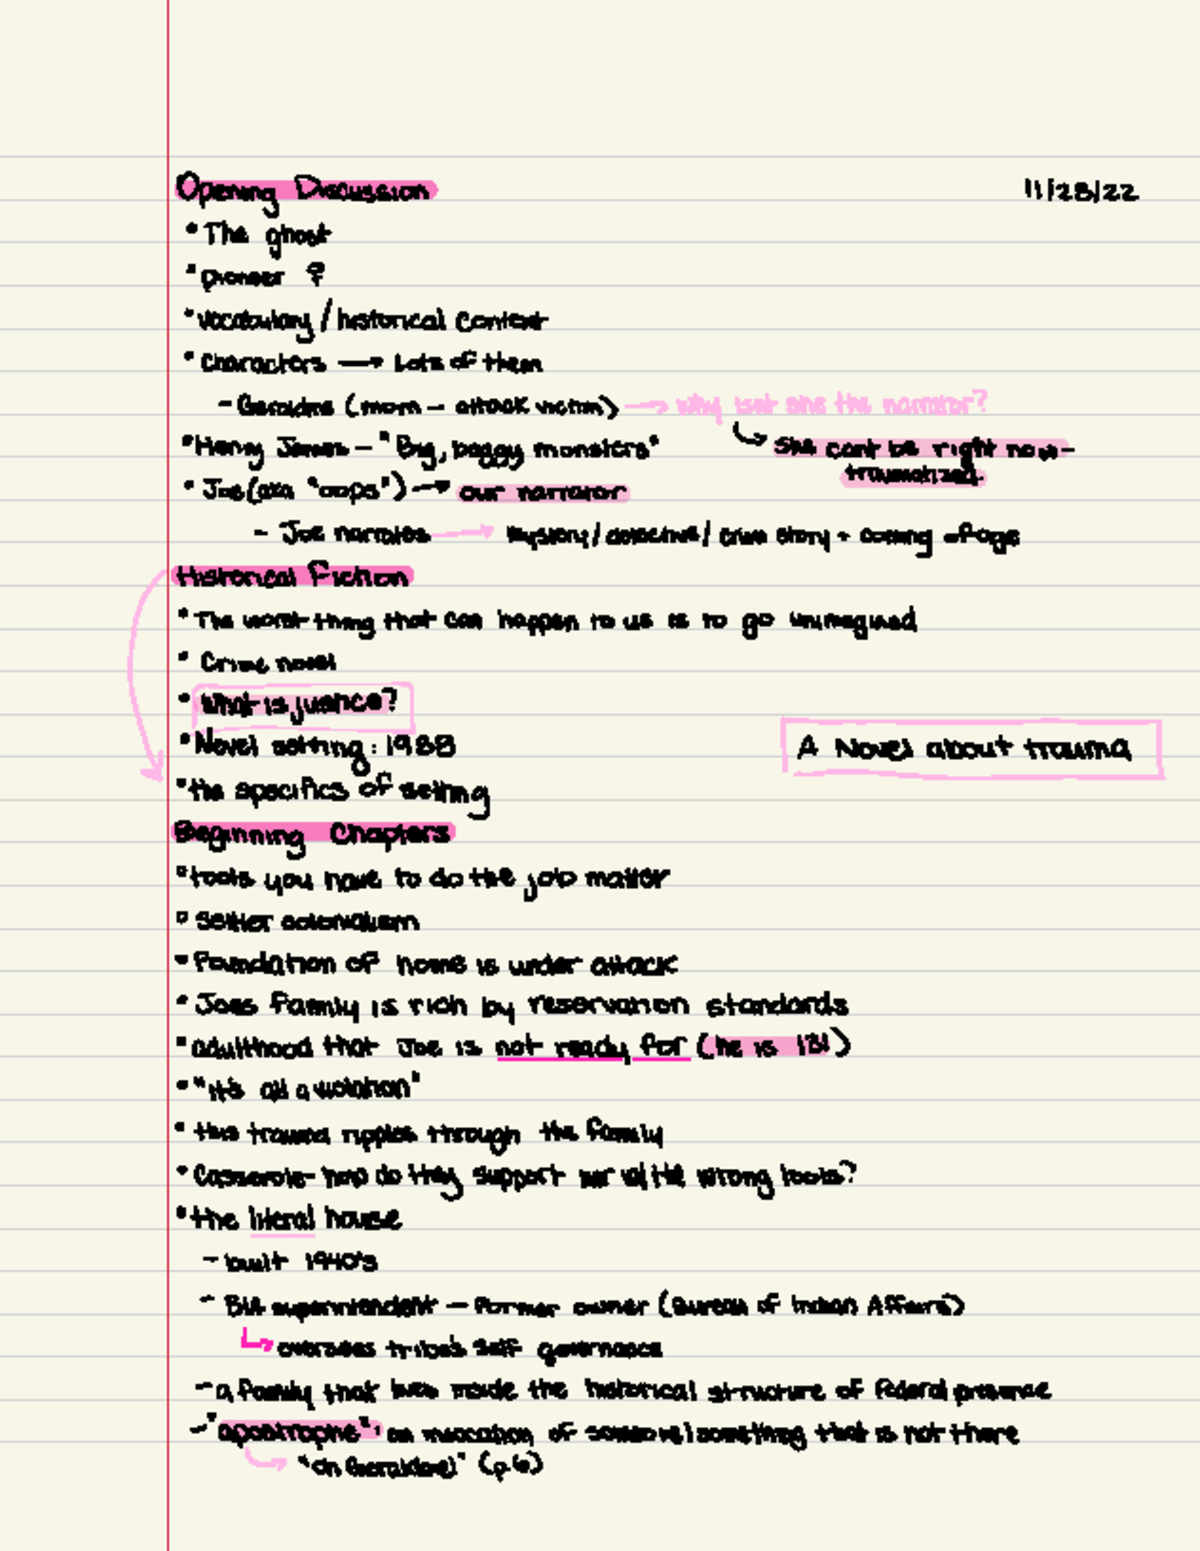 Opening Discussion 11/28/22
• The ghost
• pioneer ?
• vocabulary / historical context
• Characters → Lots of them
- Geraldine (mom - attack victim) → why isnt she the narrator?
• Henry James - "Big, baggy monsters" ↳ she cant be right now -
traumatized.
• Joe (aka "oops") → our narrator
- Joe narrates → mystery / detective / crime story + coming of age
Historical Fiction
• The worst thing that can happen to us is to go unimagined
• Crime novel
• What is justice?
• Novel setting: 1988
A Novel about trauma
• the specifics of setting
Beginning Chapters
• tools you have to do the job matter
• settler colonialism
• foundation of home is under attack
• Joes family is rich by reservation standards
• adulthood that Joe is not ready for (he is 13!)
• "it's all a violation"
• this trauma ripples through the family
• Casserole- how do they support her w/ the wrong tools?
• the literal house
- built 1940's
- BIA superintendent - former owner (Bureau of Indian Affairs)
↳ oversees tribe's self governance
- a family that lives inside the historical structure of federal presence
- "apostrophe": an invocation of someone/something that is not there
→ "Oh Geraldine!" (p.6)